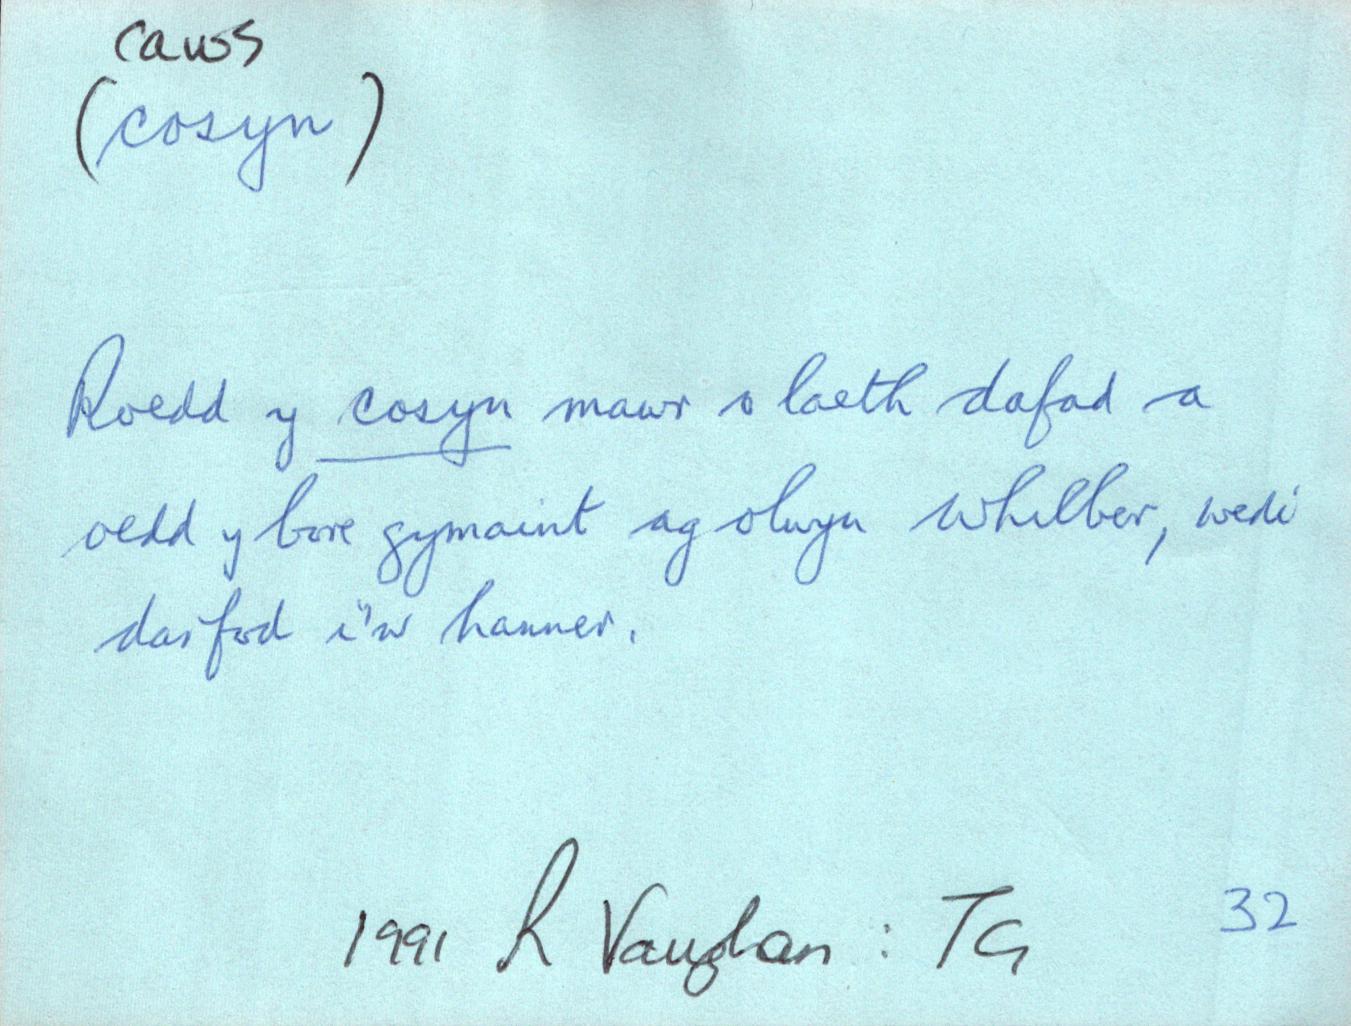 caws
(cosyn)
Roedd y cosyn mawr o laeth dafad a
oedd y bore gymaint ag olwyn whilber, wedi
darfod i'w hanner.
1991 R Vaughan : TG 32